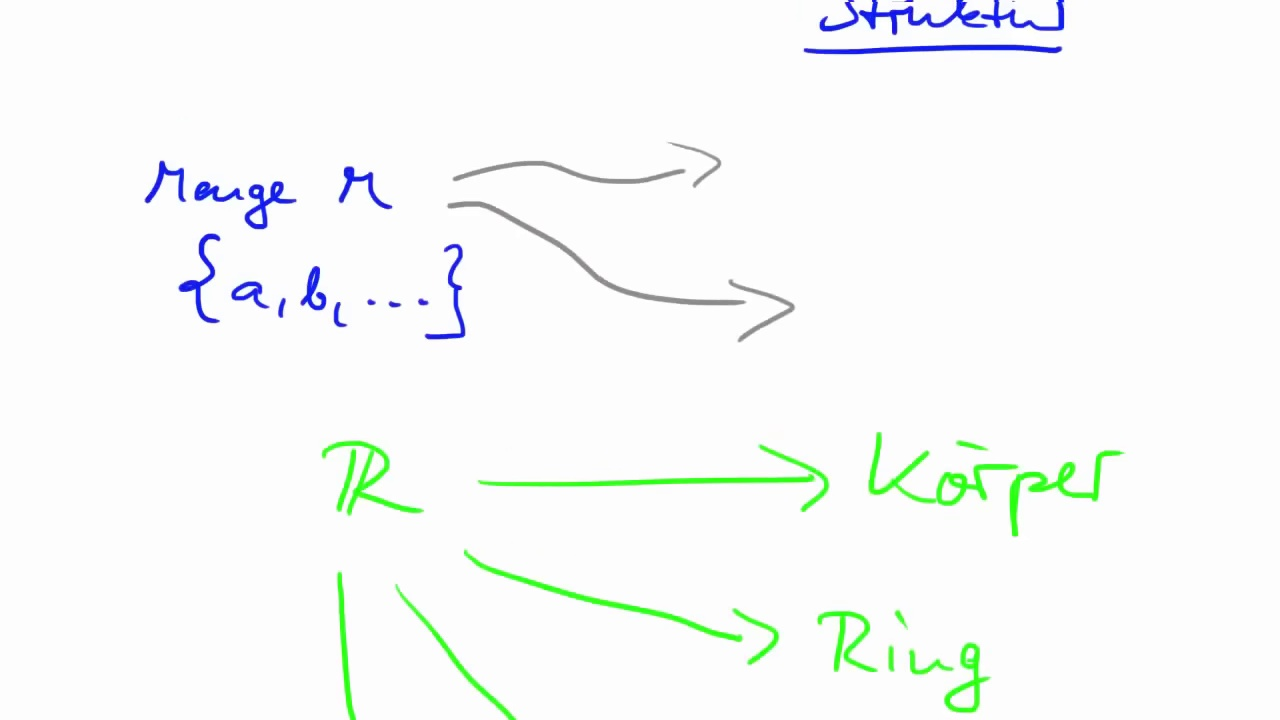 Struktur
Menge M
{a, b, ...}
ℝ
Körper
Ring